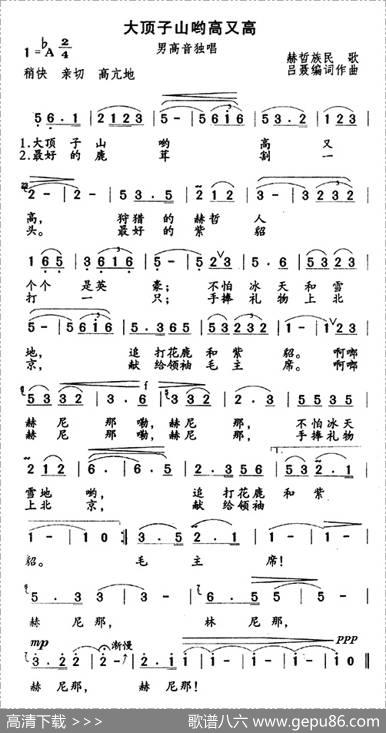 大顶子山哟高又高
1=♭A 2/4
男高音独唱
赫哲族民 歌
稍快 亲切 高亢地
吕聂编词作曲
5 6·1 | 2 1 2 3 | 5 - | 5 6 1 6 | 5·3 2 3 |
1.大顶 子 山 哟 高 又
2.最好 的 鹿 茸 割 一
2 - | 2 - | 5 3·5 | 2 1 2 | 3 - | 3 2 3 2 |
高, 狩猎 的 赫 哲 人
头。 最好 的 紫 貂
1 6 5 | 3 6 1 6 | 5 - | 5 2 3 | 5·3 5 | 5·3 2 3 |
个个 是英 豪; 不怕 冰 天 和 雪
打 一 只; 手捧 礼 物 上 北
5 - | 5 6 1 6 | 5·3 6 5 | 5 3 2 3 2 | 1 - | 1 2 3 |
地, 追 打花鹿 和 紫 貂。 啊啷
京, 献 给领袖 毛 主 席。 啊啷
5 3 3 2 | 3·2 1 | 6·1 | 3·2 3 | 2 - | 5 5 3 5 |
赫 尼 那 嘞, 赫 尼 那, 不怕冰天
赫 尼 那 嘞, 赫 尼 那, 手捧礼物
2 1 2 | 6· | 6·5 | 5·3 6 5 | 5 3 2·1 |
雪地 哟, 追 打花鹿 和 紫
上北 京, 献 给领袖
1 - | 1 0 :| 5·3 | 2 2·1 | 1 - | 1 - |
貂。 毛 主 席!
5·3 | 3 - | 6·5 | 5 - | 5 - |
赫 尼 那, 林 尼那,
mp 渐慢 PPP
3·2 2 | 2 2 - | 2·1 | 1 - | 1 - | 1 0 ‖
赫 尼那, 赫 尼 那!
高清下载 >>>
歌谱八六 www.gepu86.com